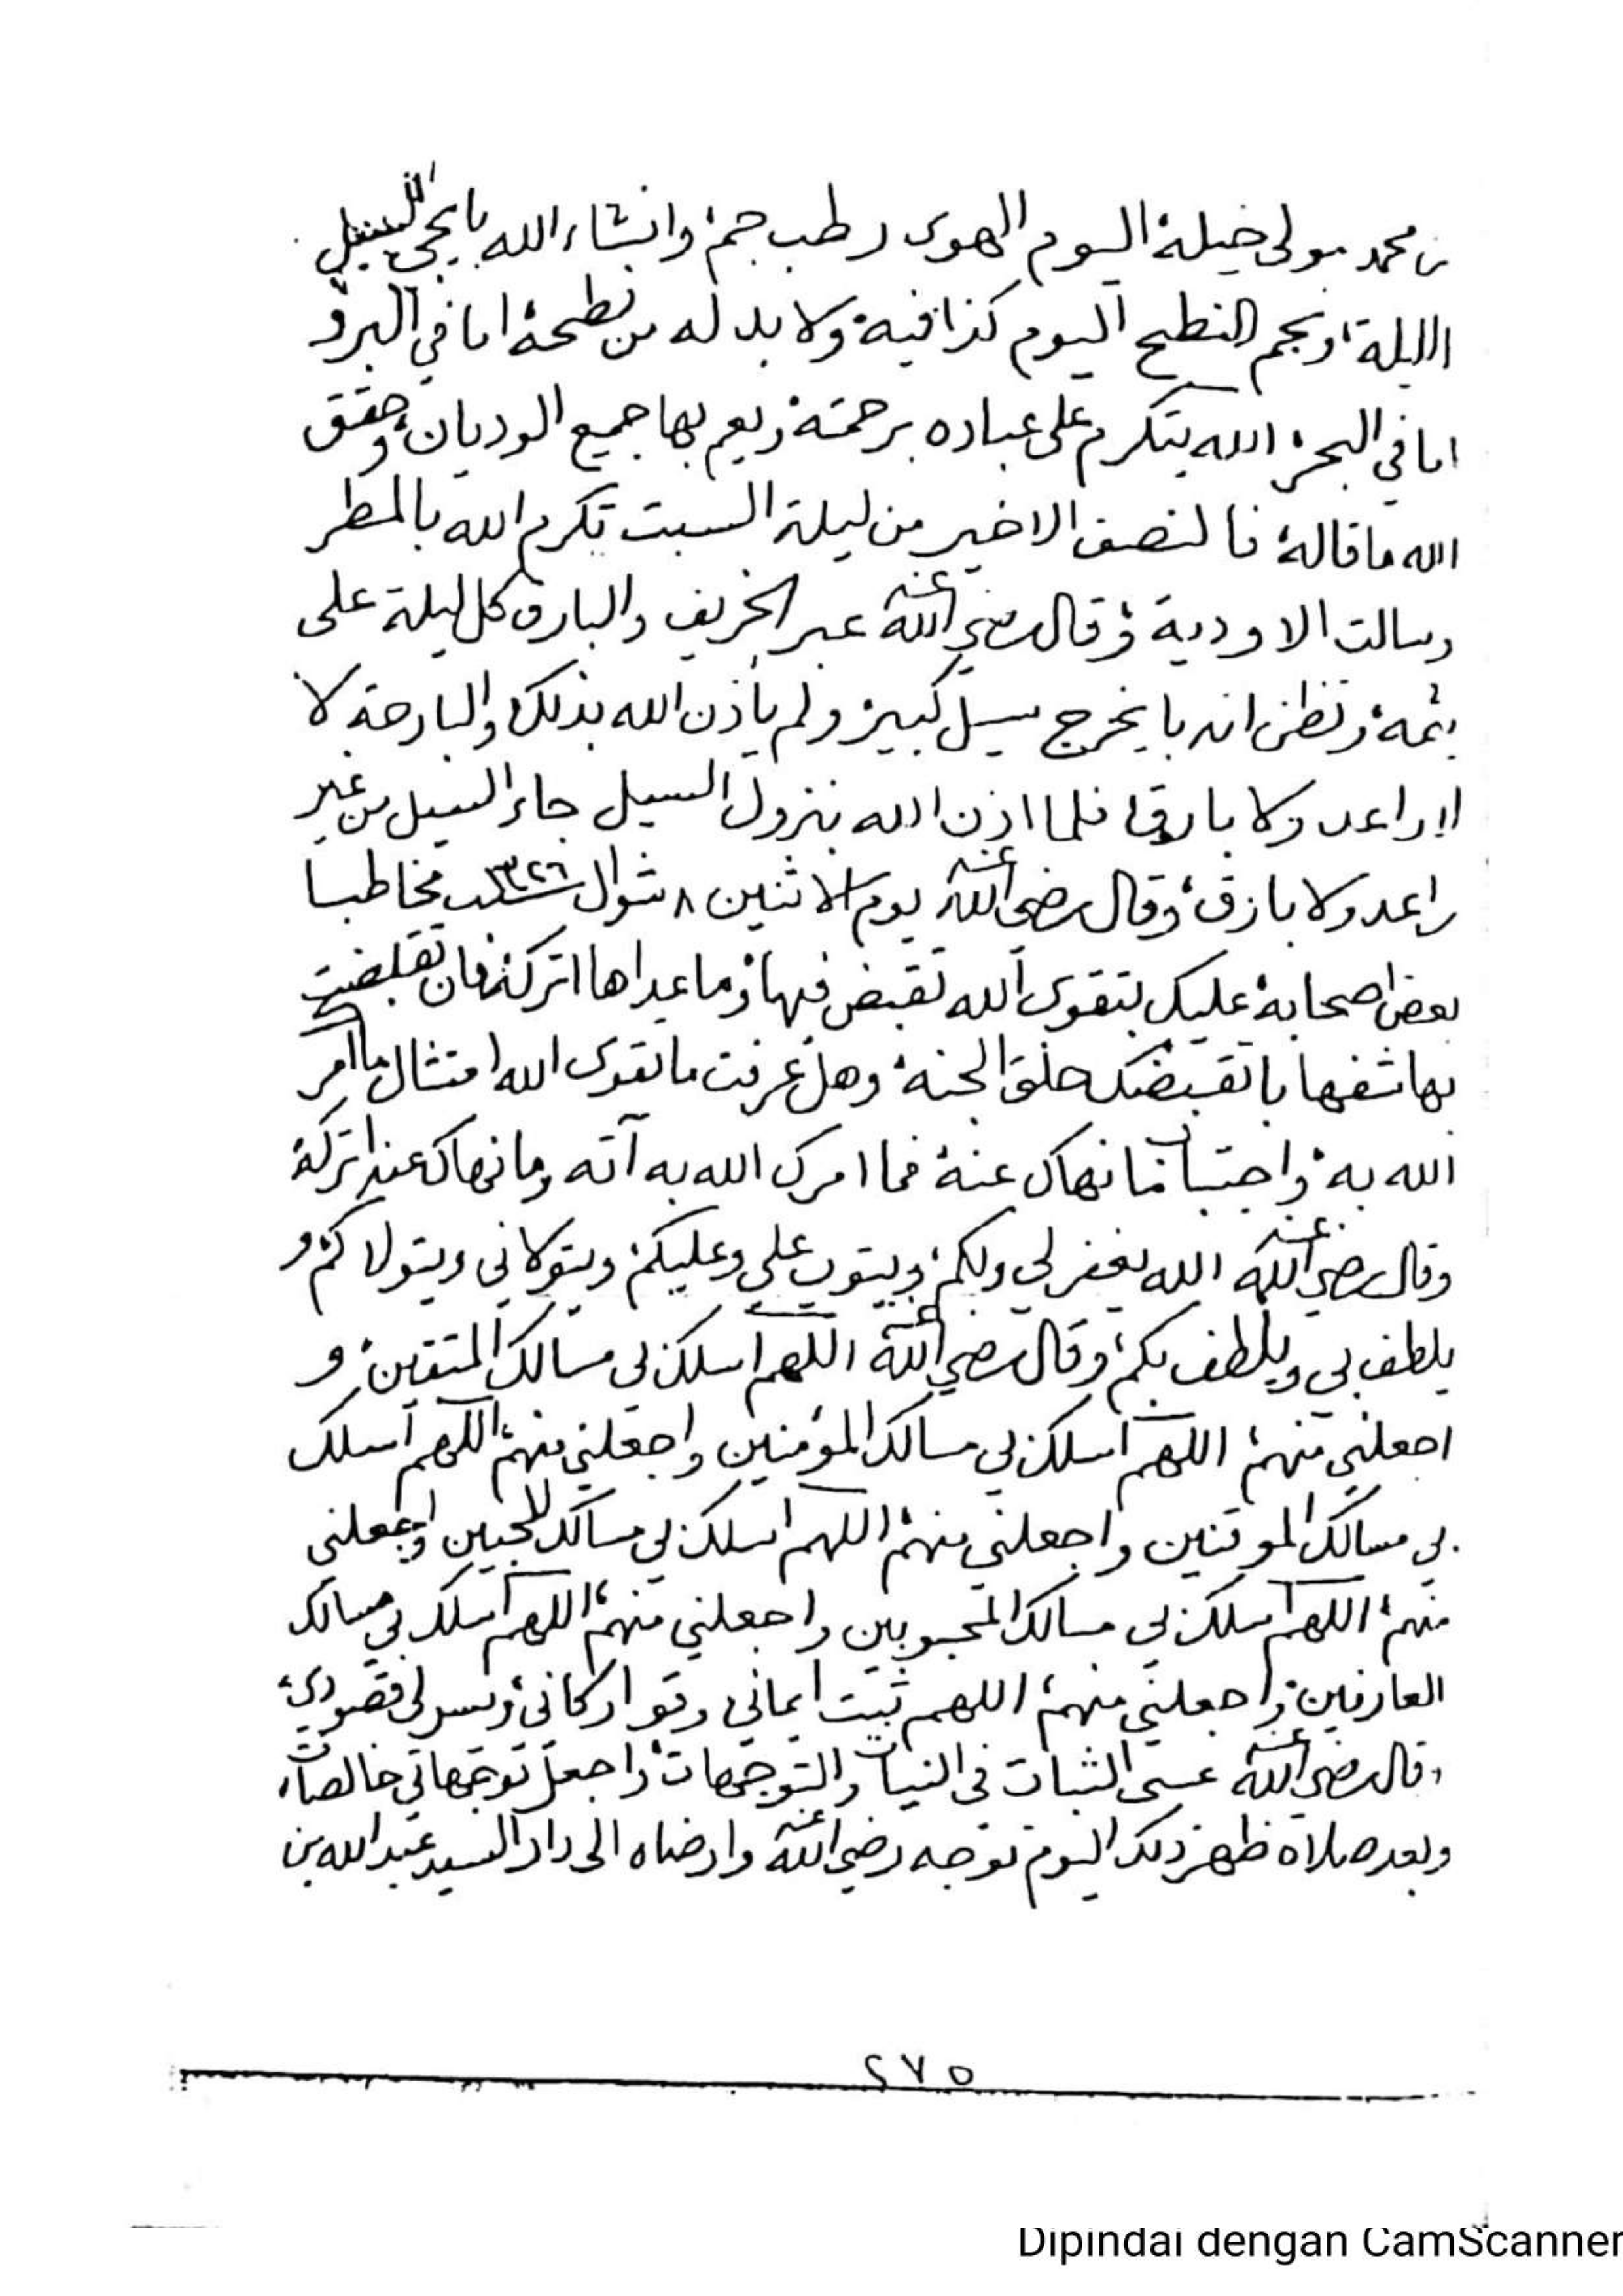 بن محمد مولى خيلة اليوم الهوى رطب جم وانشاء الله بايجي السيل
الليلة ونجم النطح اليوم كذا فيه ولا بد له من نطحة اما في البر و
اما في البحر الله يتكرم على عباده برحمته ويعم بها جميع الوديان وحقق
الله ما قاله فالنصف الاخير من ليلة السبت تكرم الله بالمطر
وسالت الاودية وقال رضي الله عنه عبر الخريف والبارق كل ليلة على
ثمه ونظن انه بايخرج سيل كبير ولم يأذن الله بذلك والبارحة لا
راعد ولا بارق فلما اذن الله بنزول السيل جاء السيل من غير
راعد ولا بارق وقال رضي الله عنه يوم الاثنين ٨ شوال سنة ١٣٢٦ مخاطبا
بعض اصحابه عليك بتقوى الله تقبض فيها وما عداها اتركه فان تقبضت
بها شفها باتقبضك حلق الجنة وهل عرفت ما تقوى الله امتثال ما امر
الله به واجتناب ما نهاك عنه فما امرك الله به آته وما نهاك عنه اتركه
وقال رضي الله عنه الله يغفر لي ولكم ويتوب علي وعليكم ويتولاني ويتولاكم و
يلطف بي ويلطف بكم وقال رضي الله عنه اللهم اسلك بي مسالك المتقين و
اجعلني منهم اللهم اسلك بي مسالك المؤمنين واجعلني منهم اللهم اسلك
بي مسالك الموقنين واجعلني منهم اللهم اسلك بي مسالك المحبين واجعلني
منهم اللهم اسلك بي مسالك المحبوبين واجعلني منهم اللهم اسلك بي مسالك
العارفين واجعلني منهم اللهم ثبت ايماني وقو اركاني ويسر لي قصودي
وقال رضي الله عنه عسى الثبات في النيات والتوجهات واجعل توجهاتي خالصات
وبعد صلاة ظهر ذلك اليوم توجه رضي الله عنه وارضاه الى دار السيد عبد الله بن
٢٧٥
Dipindai dengan CamScanner